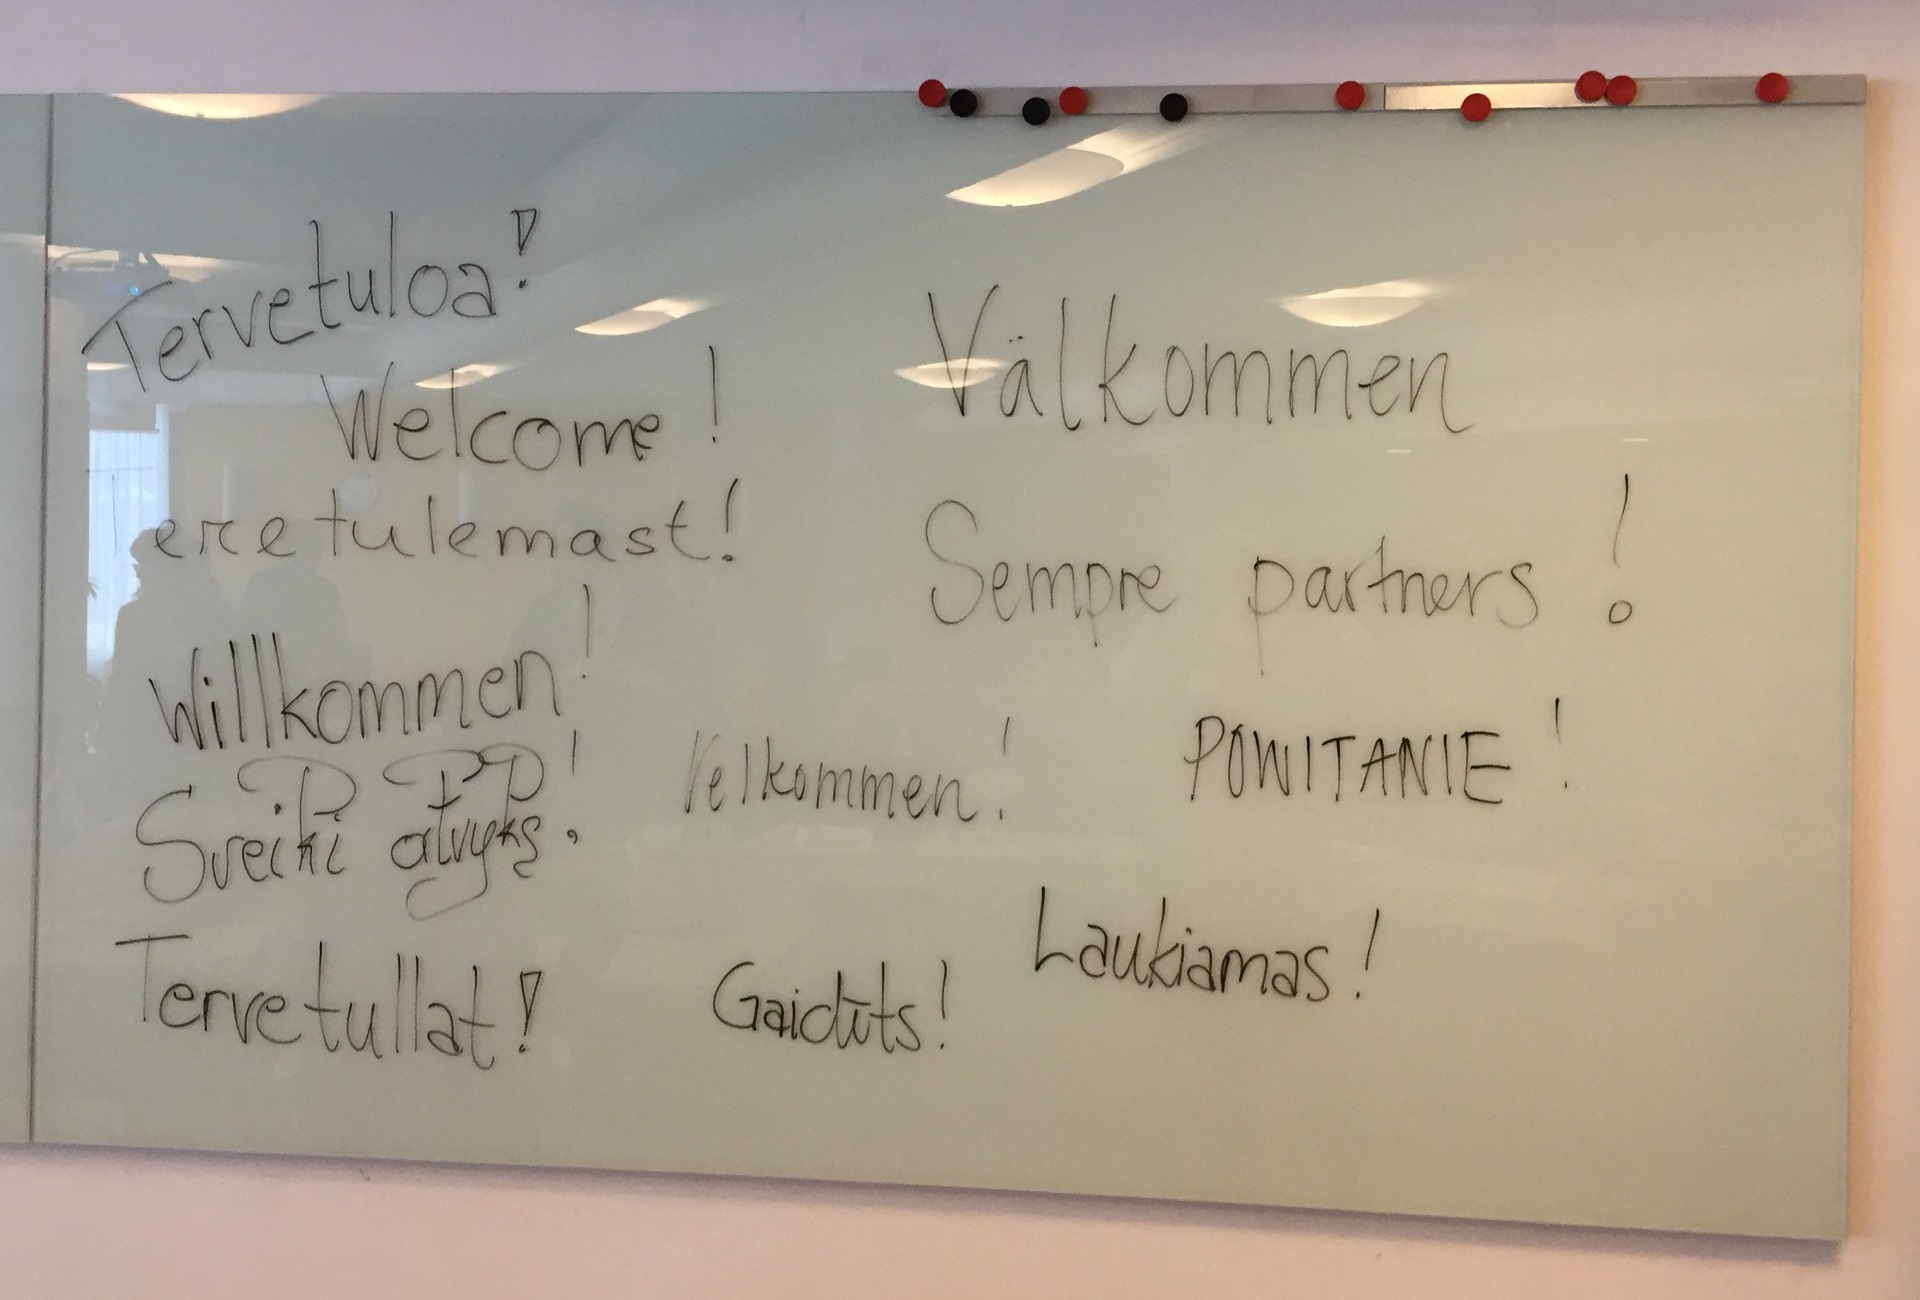 Tervetuloa!
Welcome!
Tere tulemast!
Willkommen!
Sveiki atvykę!
Tervetullat!
Välkommen
Sempre partners!
Velkommen!
POWITANIE!
Laukiamas!
Gaidīts!